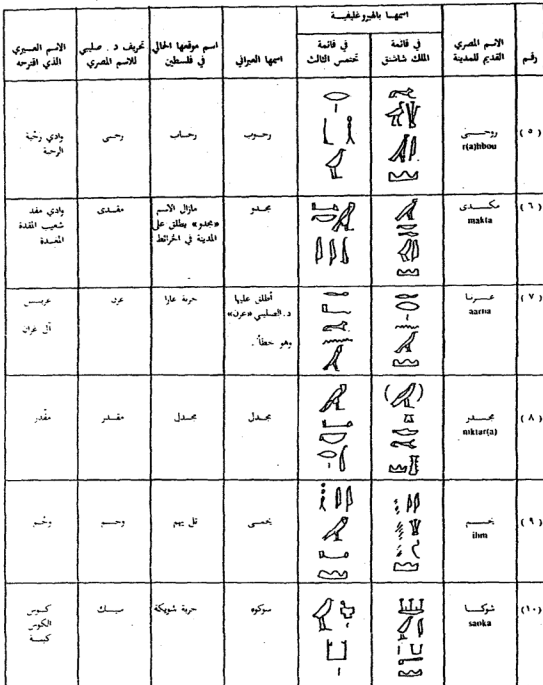 رقم | الاسم المصري القديم للمدينة | اسمها بالهيروغليفية: في قائمة الملك شاشنق | في قائمة تحتمس الثالث | اسمها العبراني | اسم موقعها الحالي في فلسطين | تحريف د . صليبي للاسم المصري | الاسم العسيري الذي اقترحه
(٥) | r(a)hbou | رحوب | رحاب | رحبى | وادي رحبة الرحبة
(٦) | مكدى makta | مجدو | مازال الاسم «مجدو» يطلق على المدينة في الخرائط | مقدى | وادي مقد شعيب المقدة المغدة
(٧) | عرنا aarna | أطلق عليها د. الصليبي «عرن» وهو خطأ . | خربة عارا | عرن | آل عران
(٨) | مجدر mktar(a) | مجدل | مجدل | مقدر | مقدر
(٩) | يحم ihm | تل يهم | وحم | وخم
(١٠) | شوكا saoka | سوكوه | خربة شويكة | الكوس كبسة